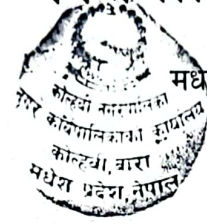 मध
कोल्हवी नगरपालिका
नगर कार्यपालिकाको कार्यालय
कोल्हवी, बारा
मधेश प्रदेश, नेपाल